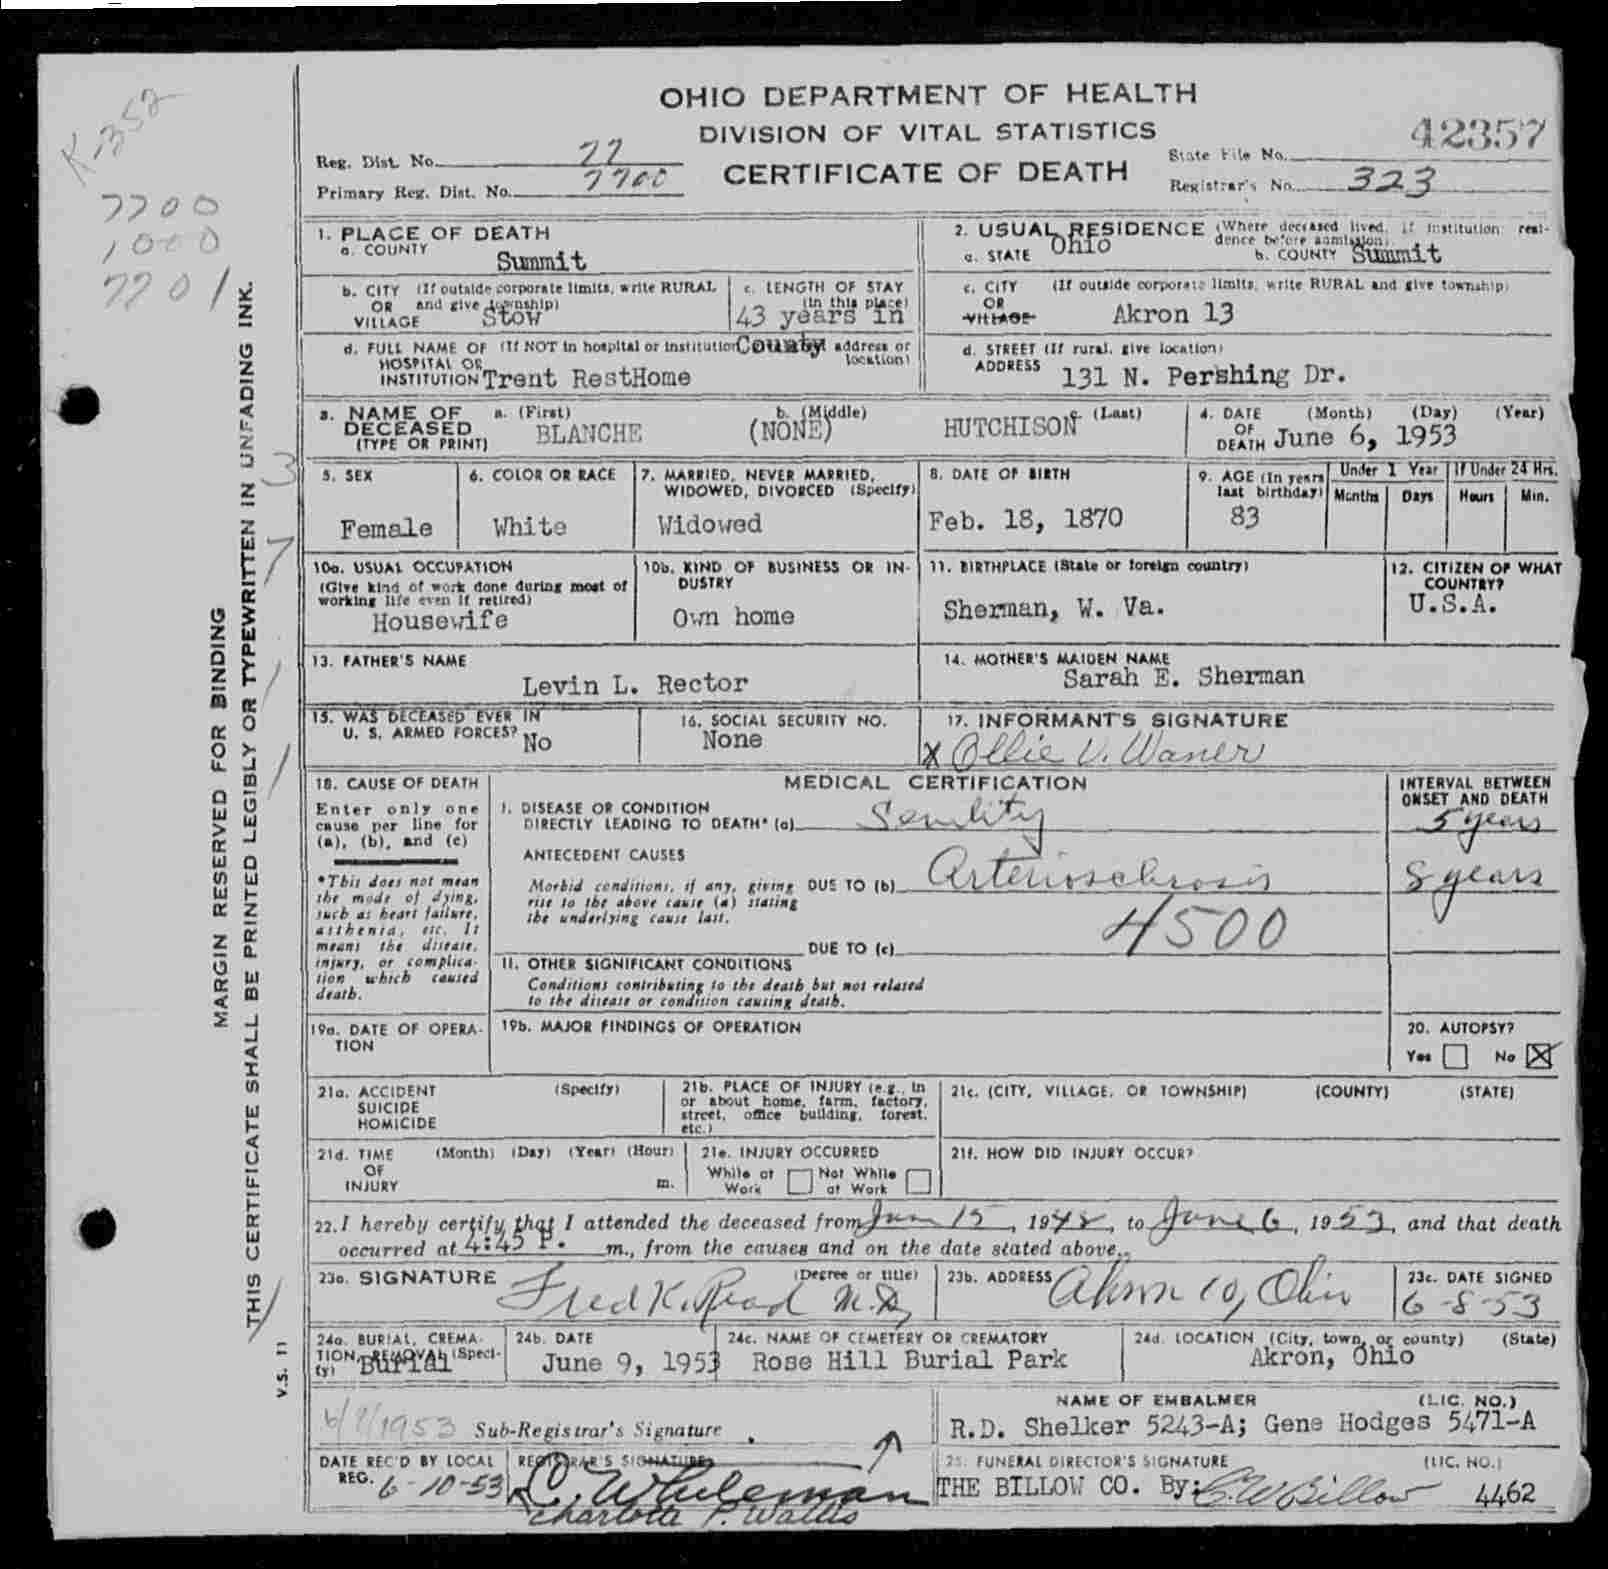 OHIO DEPARTMENT OF HEALTH
DIVISION OF VITAL STATISTICS
CERTIFICATE OF DEATH
K 1352
7700
1000
7701
Reg. Dist. No. 77
Primary Reg. Dist. No. 7700
State File No. 42357
Registrar's No. 323
MARGIN RESERVED FOR BINDING
THIS CERTIFICATE SHALL BE PRINTED LEGIBLY OR TYPEWRITTEN IN UNFADING INK.
V.S. 11
1. PLACE OF DEATH
a. COUNTY Summit
b. CITY (If outside corporate limits, write RURAL
OR and give township)
VILLAGE Stow
c. LENGTH OF STAY
(in this place)
43 years in
County
d. FULL NAME OF (If NOT in hospital or institution address or
HOSPITAL OR location)
INSTITUTION Trent RestHome
2. USUAL RESIDENCE (Where deceased lived. If institution: resi-
dence before admission).
a. STATE Ohio b. COUNTY Summit
c. CITY (If outside corporate limits, write RURAL and give township)
OR
VILLAGE Akron 13
d. STREET (If rural, give location)
ADDRESS 131 N. Pershing Dr.
3. NAME OF a. (First) b. (Middle) c. (Last)
DECEASED
(TYPE OR PRINT) BLANCHE (NONE) HUTCHISON
4. DATE (Month) (Day) (Year)
OF
DEATH June 6, 1953
5. SEX
Female
6. COLOR OR RACE
White
7. MARRIED, NEVER MARRIED,
WIDOWED, DIVORCED (Specify)
Widowed
8. DATE OF BIRTH
Feb. 18, 1870
9. AGE (In years
last birthday)
83
Under 1 Year If Under 24 Hrs.
Months Days Hours Min.
10a. USUAL OCCUPATION
(Give kind of work done during most of
working life even if retired)
Housewife
10b. KIND OF BUSINESS OR IN-
DUSTRY
Own home
11. BIRTHPLACE (State or foreign country)
Sherman, W. Va.
12. CITIZEN OF WHAT
COUNTRY?
U.S.A.
13. FATHER'S NAME
Levin L. Rector
14. MOTHER'S MAIDEN NAME
Sarah E. Sherman
15. WAS DECEASED EVER IN
U. S. ARMED FORCES? No
16. SOCIAL SECURITY NO.
None
17. INFORMANT'S SIGNATURE
X Ollie V. Waner
18. CAUSE OF DEATH
Enter only one
cause per line for
(a), (b), and (c)
*This does not mean
the mode of dying,
such as heart failure,
asthenia, etc. It
means the disease,
injury, or complica-
tion which caused
death.
MEDICAL CERTIFICATION
I. DISEASE OR CONDITION
DIRECTLY LEADING TO DEATH* (a) Senility
ANTECEDENT CAUSES
Morbid conditions, if any, giving DUE TO (b) Arteriosclerosis
rise to the above cause (a) stating
the underlying cause last.
4500
DUE TO (c)
II. OTHER SIGNIFICANT CONDITIONS
Conditions contributing to the death but not related
to the disease or condition causing death.
INTERVAL BETWEEN
ONSET AND DEATH
5 years
8 years
19a. DATE OF OPERA-
TION
19b. MAJOR FINDINGS OF OPERATION
20. AUTOPSY?
Yes No X
21a. ACCIDENT (Specify)
SUICIDE
HOMICIDE
21b. PLACE OF INJURY (e.g., in
or about home, farm, factory,
street, office building, forest,
etc.)
21c. (CITY, VILLAGE, OR TOWNSHIP) (COUNTY) (STATE)
21d. TIME (Month) (Day) (Year) (Hour)
OF
INJURY m.
21e. INJURY OCCURRED
While at Not While
Work at Work
21f. HOW DID INJURY OCCUR?
22. I hereby certify that I attended the deceased from Jan 15, 1948, to June 6, 1953, and that death
occurred at 4:45 P. m., from the causes and on the date stated above.
23a. SIGNATURE (Degree or title)
Fred K. Read M.D.
23b. ADDRESS Akron 10, Ohio
23c. DATE SIGNED
6-8-53
24a. BURIAL, CREMA-
TION, REMOVAL (Speci-
fy) Burial
24b. DATE
June 9, 1953
24c. NAME OF CEMETERY OR CREMATORY
Rose Hill Burial Park
24d. LOCATION (City, town, or county) (State)
Akron, Ohio
1953 Sub-Registrar's Signature
NAME OF EMBALMER (LIC. NO.)
R.D. Shelker 5243-A; Gene Hodges 5471-A
DATE REC'D BY LOCAL
REG. 6-10-53
REGISTRAR'S SIGNATURE
Charlotte P. Wallis
25. FUNERAL DIRECTOR'S SIGNATURE (LIC. NO.)
THE BILLOW CO. By: C.W. Billow 4462